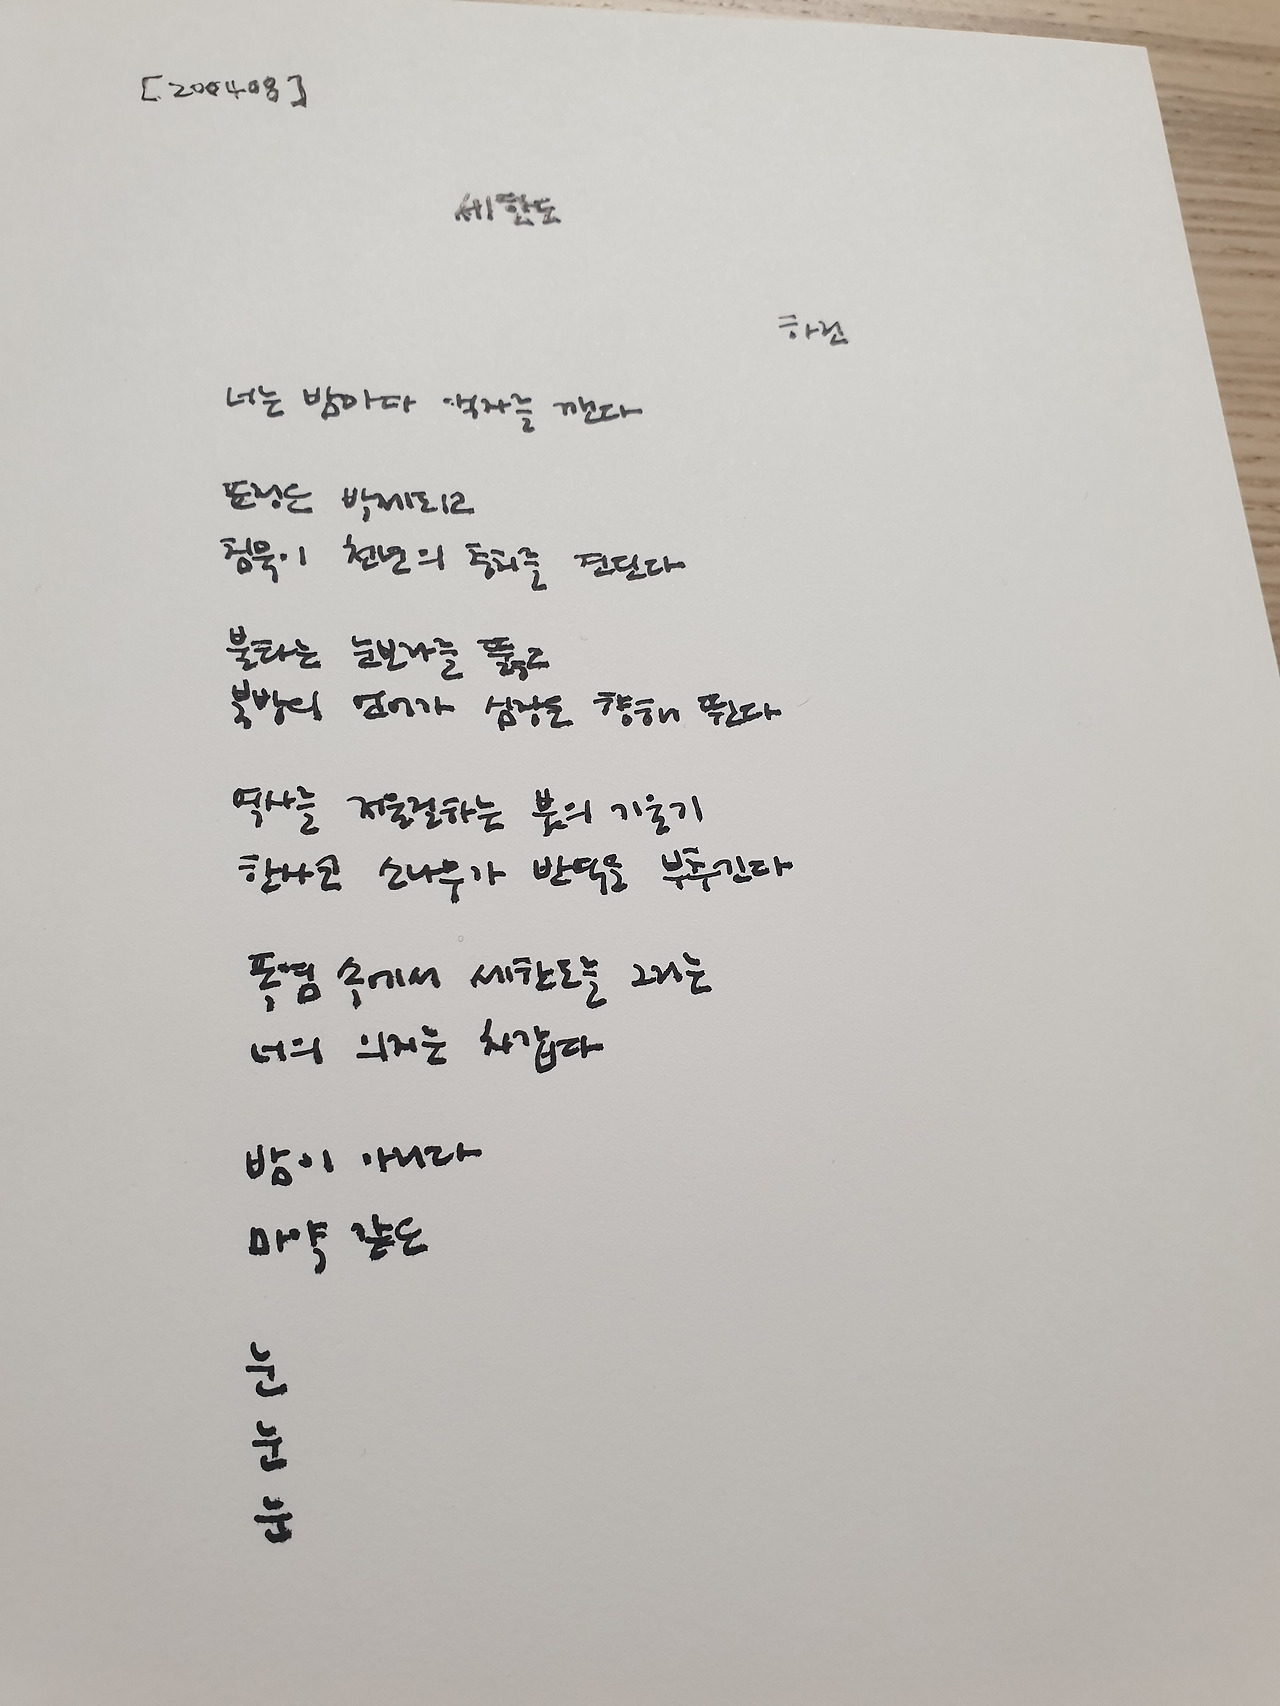 [200408]
세한도
하린
너는 밤마다 액자를 깬다
표정은 박제되고
침묵이 천년의 풍화를 견딘다
불타는 눈보라를 뚫고
북방의 언어가 심장을 향해 뛴다
역사를 저울질하는 붓의 기울기
한사코 소나무가 반역을 부추긴다
폭염 속에서 세한도를 그리는
너의 의지는 차갑다
밤이 아니다
마약 같은
눈
눈
눈